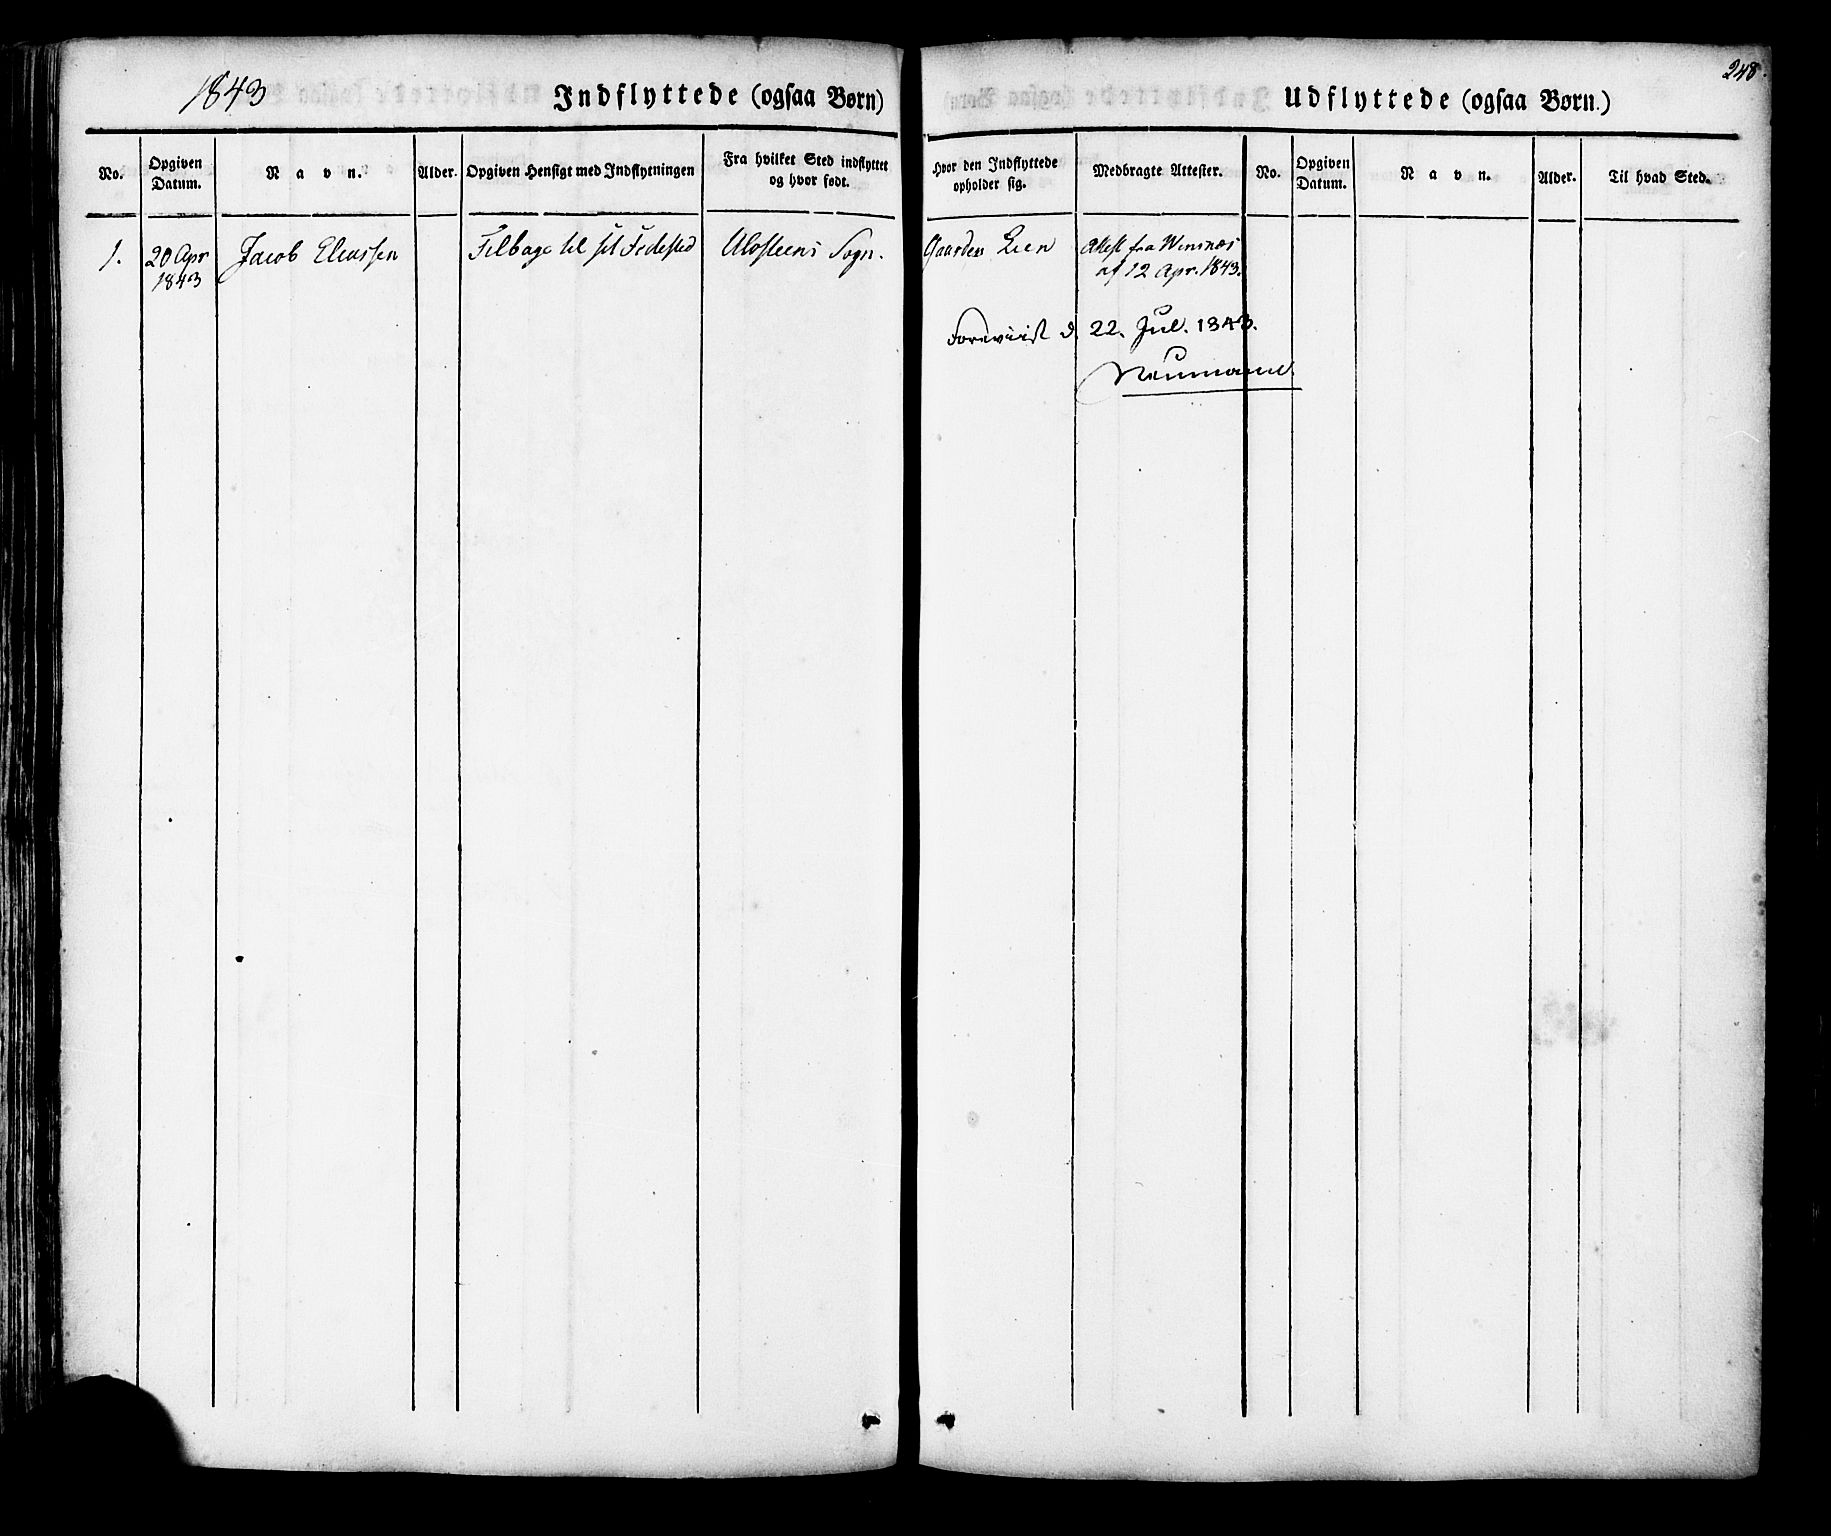 1843
Indflyttede (ogsaa Børn)
No.
Opgiven Datum.
Navn.
Alder.
Opgiven Hensigt med Indflytningen
Fra hvilket Sted indflyttet og hvor født.
1.
20 Apr 1843
Jacob Eliassen
Tilbage til sit Fødested
Ulvsteens Sogn.
248.
Udflyttede (ogsaa Børn.)
Hvor den Indflyttede opholder sig.
Medbragte Attester.
No.
Opgiven Datum.
Navn.
Alder.
Til hvad Sted.
Gaarden Lien
Attest fra
af 12 Apr. 1843.
Foreviist d. 22. Jul. 1843.
Neumann.